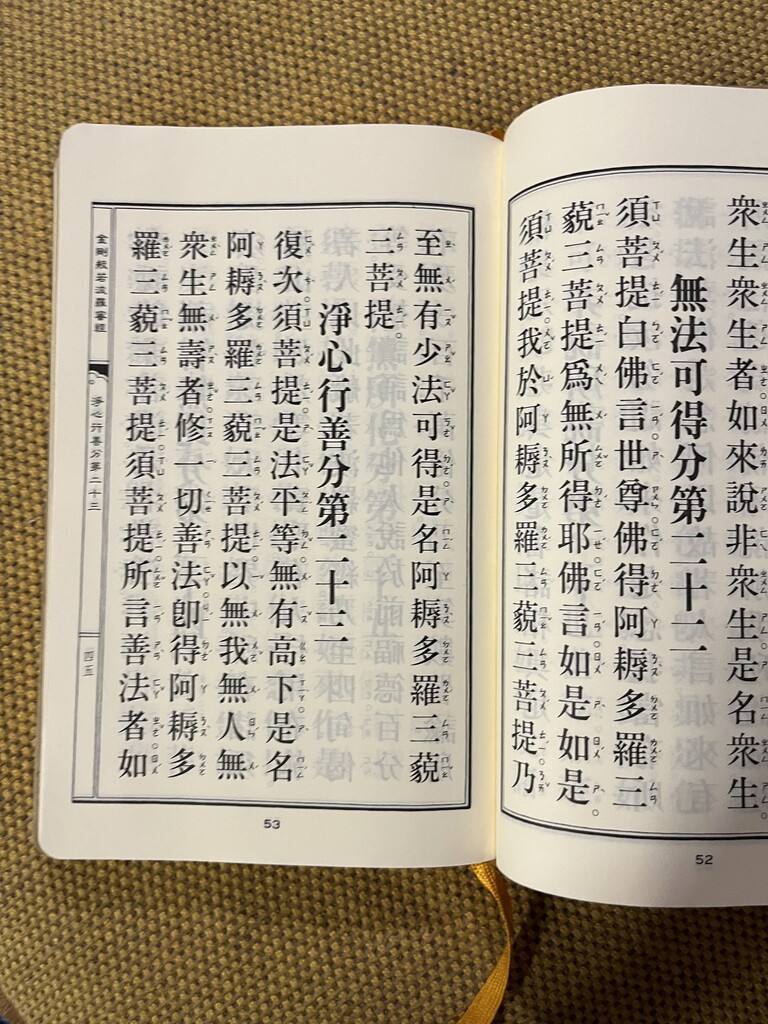 眾生眾生者如來說非眾生是名眾生。
無法可得分第二十二
須菩提白佛言。世尊。佛得阿耨多羅三
藐三菩提。為無所得耶。佛言。如是如是。
須菩提。我於阿耨多羅三藐三菩提。乃
52
至無有少法可得。是名阿耨多羅三藐
三菩提。
淨心行善分第二十三
復次。須菩提。是法平等。無有高下。是名
阿耨多羅三藐三菩提。以無我無人無
眾生無壽者。修一切善法。即得阿耨多
羅三藐三菩提。須菩提。所言善法者。如
金剛般若波羅蜜經
淨心行善分第二十三
一四五
53